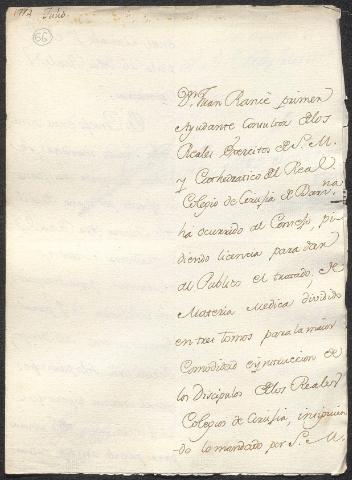 1772 Junio.
66
Dⁿ Juan Rancè primer
Ayudante Consultor de los
Reales Exercitos de S. M.
y Cathedratico del Real
Colegio de Cirusia de Barⁿᵃ
ha ocurrido al Consejo, pi
diendo licencia para dar
al Publico el tratado, de
Materia Medica dividido
en tres tomos para la maior
Comodidad è ynstruccion de
los Discipulos de los Reales
Colegios de Cirusia, insiguien
do lo mandado por S. M.